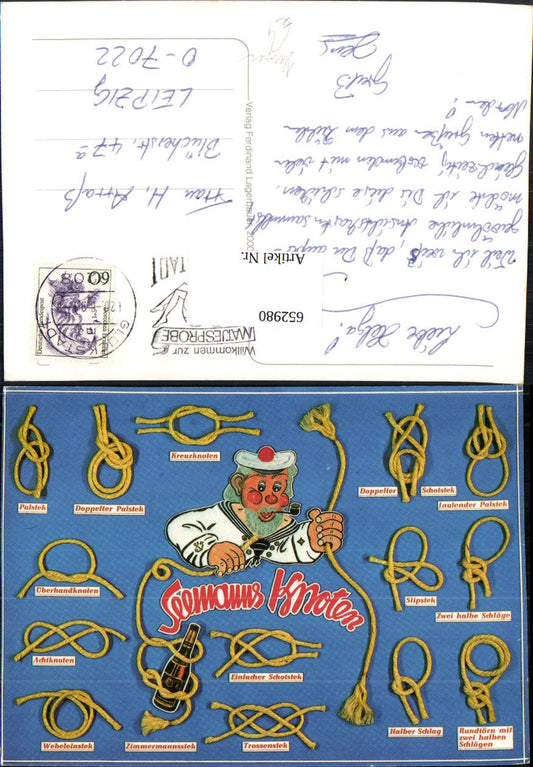 Liebe Helga!
Weil ich weiß, daß Du außer-
gewöhnliche Ansichtskarten sammelst,
möchte ich Dir diese schicken.
Gleichzeitig verbunden mit vielen
netten Grüßen aus dem hohen
Norden!
Gruß
Jens
Verlag Ferdinand Lagerbauer
Frau H. Arraß
Blücherstr. 47a
LEIPZIG
O-7022
Willkommen zur
MATJESPROBE
GLÜCKSTADT
60
Deutsche Bundespost
Artikel Nr.
652980
Palstek
Doppelter Palstek
Kreuzknoten
Doppelter Schotstek
Laufender Palstek
Überhandknoten
Seemanns Knoten
Slipstek
Zwei halbe Schläge
Achtknoten
Einfacher Schotstek
Webeleinstek
Zimmermannsstek
Trossenstek
Halber Schlag
Rundtörn mit
zwei halben
Schlägen